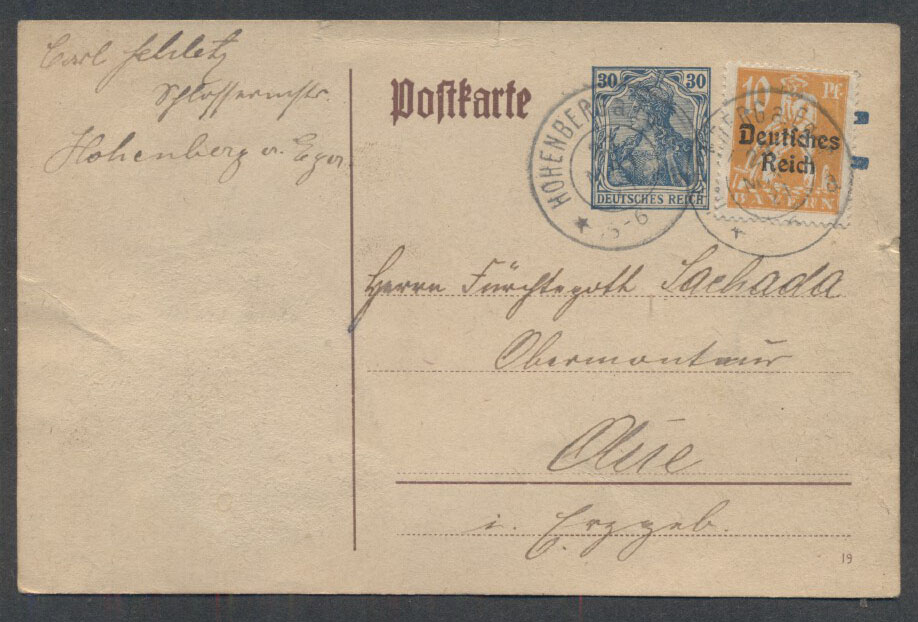 Carl
Schlossermstr.
Hohenberg a. Eger.
Postkarte
30 30
DEUTSCHES REICH
10 Pf.
Deutsches
Reich
BAYERN
HOHENBERG a.
5-6
Herrn Fürchtegott Sachada
Obermonteur
Aue
i. Erzgeb.
19